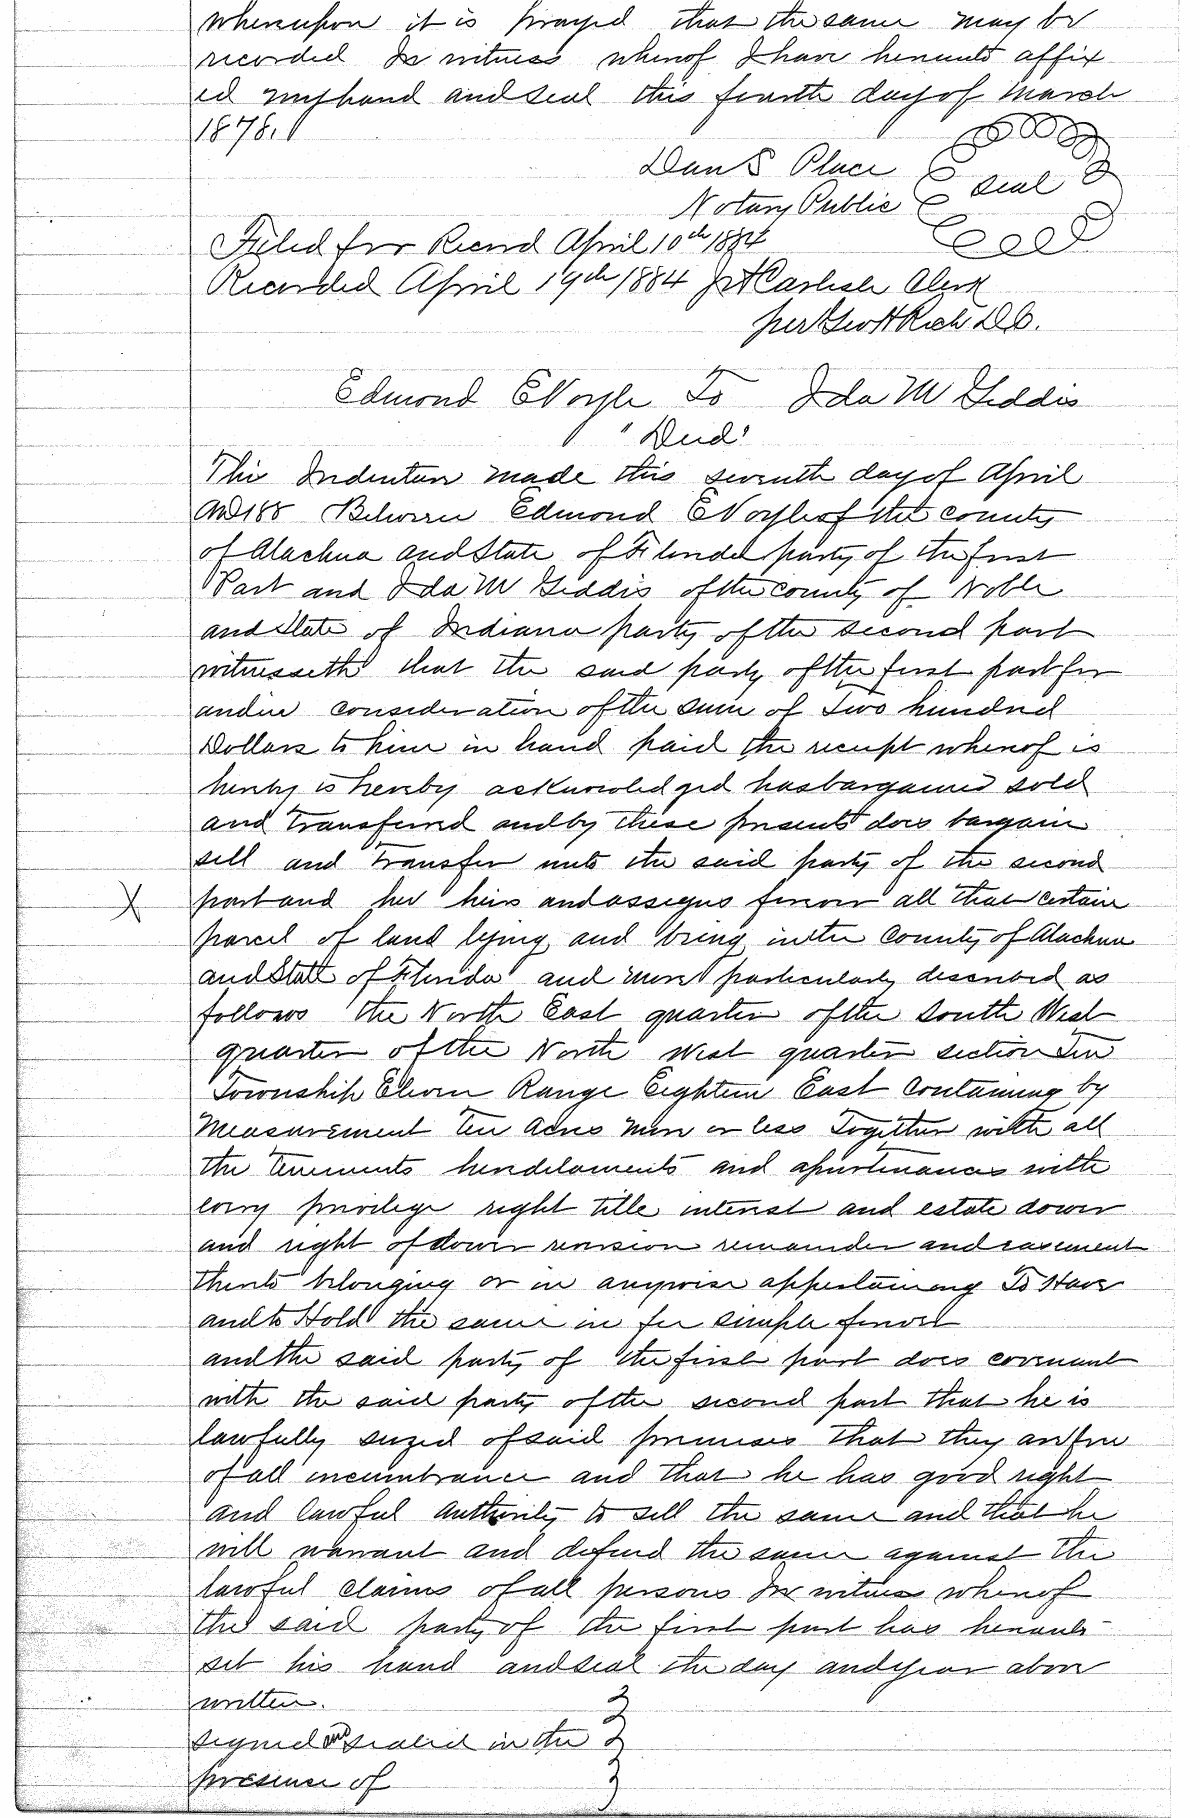 whereupon it is prayed that the same may be
recorded In witness whereof I have hereunto affix
ed my hand and seal this fourth day of March
1878.
Dan S Place
seal
Notary Public
Filed for Record April 10th 1884
Recorded April 19th 1884 J A Carlisle Clerk
per Geo H Rich D.C.
Edmond E Voyle To Ida M Geddis
"Deed"
This Indenture made this seventh day of April
AD 188 Between Edmond E Voyle of the county
of Alachua and State of Florida party of the first
Part and Ida M Geddis of the county of Noble
and State of Indiana party of the second part
witnesseth that the said party of the first part for
and in consideration of the sum of Two hundred
Dollars to him in hand paid the receipt whereof is
hereby is hereby acknowledged has bargained sold
and transferred and by these presents does bargain
sell and transfer unto the said party of the second
part and her heirs and assigns forever all that certain
parcel of land lying and being in the County of Alachua
and State of Florida and more particularly described as
follows the North East quarter of the South West
quarter of the North West quarter section Ten
Township Eleven Range Eighteen East Containing by
Measurement Ten Acres more or less Together with all
the tenements heredetaments and apurtenances with
every privilege right title interest and estate dower
and right of dower reversion remainder and easement
thereto belonging or in anywise appertaining To Have
and to Hold the same in fee simple forever
and the said party of the first part does covenant
with the said party of the second part that he is
lawfully seized of said premises that they are free
of all incumbrance and that he has good right
and lawful authority to sell the same and that he
will warrant and defend the same against the
lawful claims of all persons In witness whereof
the said party of the first part has hereunto
set his hand and seal the day and year above
written.
signed and sealed in the
presence of